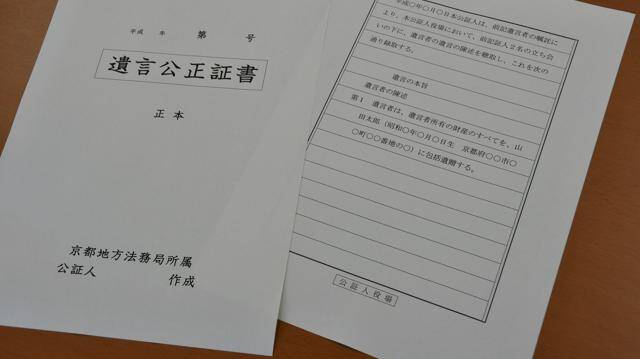 平成 年 第 号
遺言公正証書
正本
京都地方法務局所属
公証人 作成
平成〇年〇月〇日本公証人は、前記遺言者の嘱託に
より、本公証人役場において、前記証人2名の立ち会
いの下に、遺言者の遺言の陳述を聴取し、これを次の
通り録取する。
遺言の本旨
遺言者の陳述
第1 遺言者は、遺言者所有の財産のすべてを、山
田太郎（昭和〇年〇月〇日生 京都府〇〇市〇
〇町〇〇番地の〇）に包括遺贈する。
公証人役場